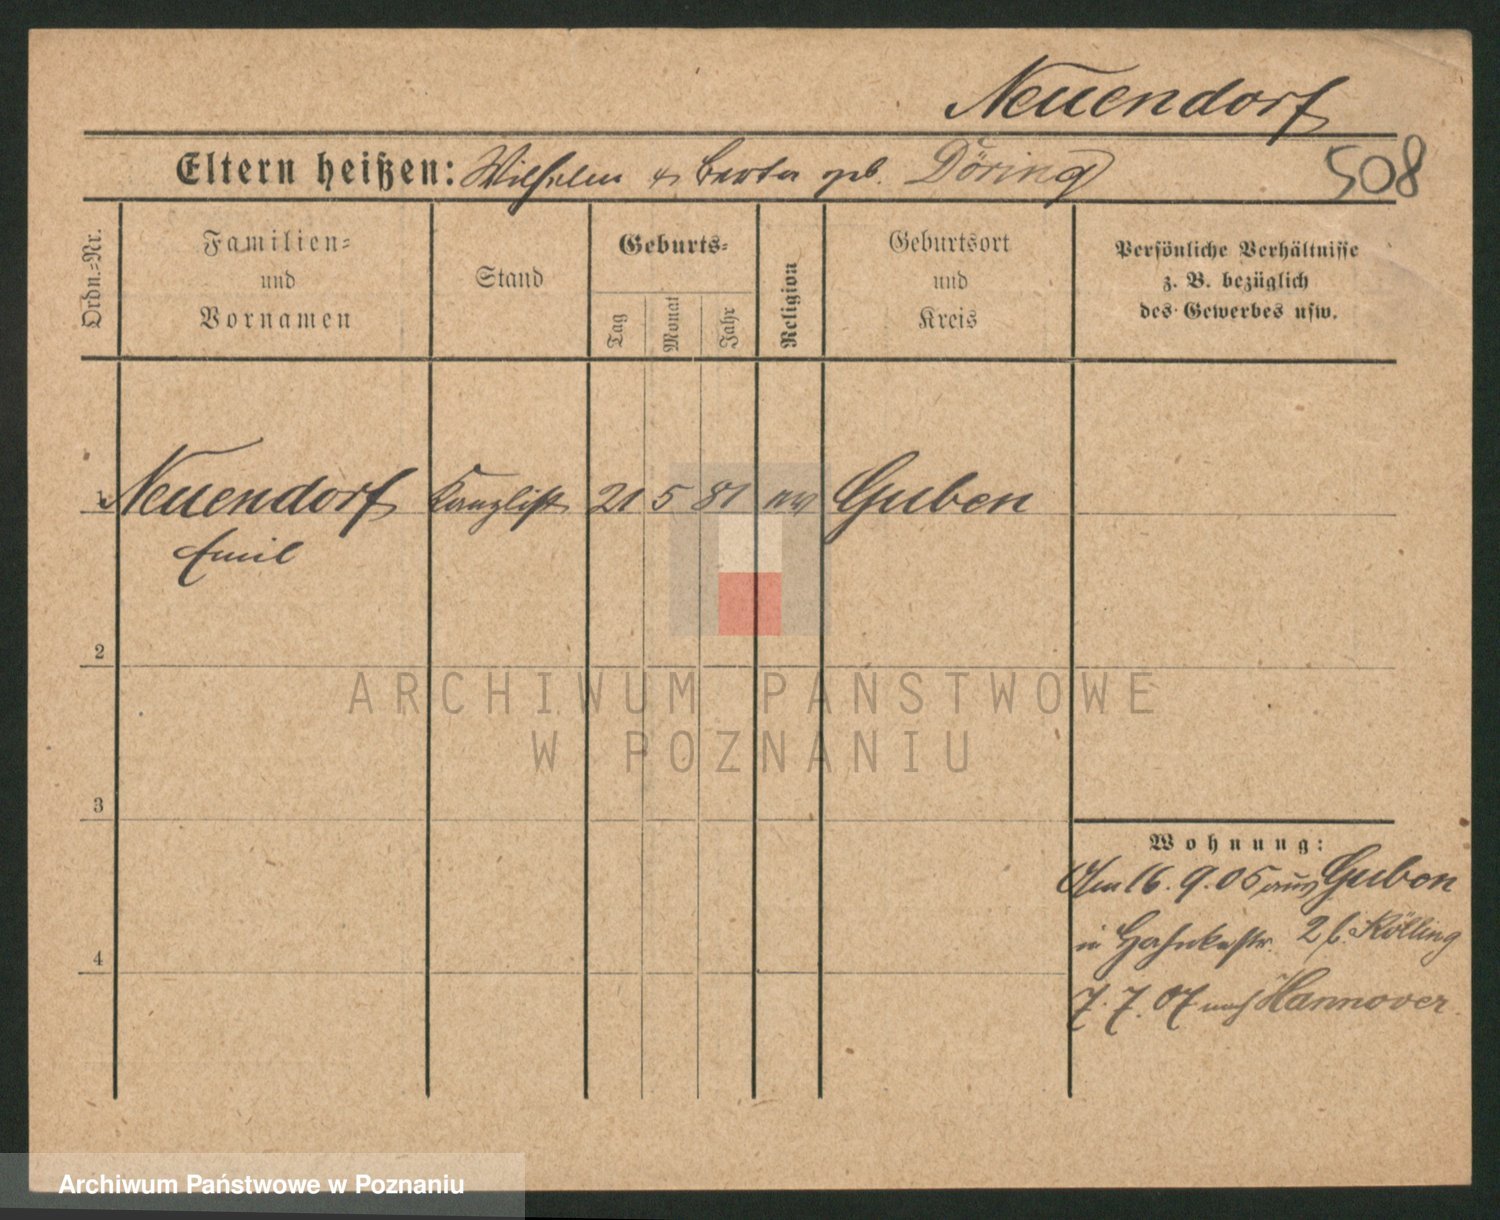 Neuendorf
508
Eltern heißen: Wilhelm & Berta geb. Döring
Ordn.-Nr.
Familien-
und
Vornamen
Stand
Geburts-
Tag
Monat
Jahr
Religion
Geburtsort
und
Kreis
Persönliche Verhältnisse
z. B. bezüglich
des Gewerbes usw.
1 Neuendorf Kanzlist 21 5 81 ev Guben
Emil
2
3
4
Wohnung:
Am 16.9.05 aus Guben
in 2 b. Kölling
7.7.07 nach Hannover.
ARCHIWUM PAŃSTWOWE
W POZNANIU
Archiwum Państwowe w Poznaniu